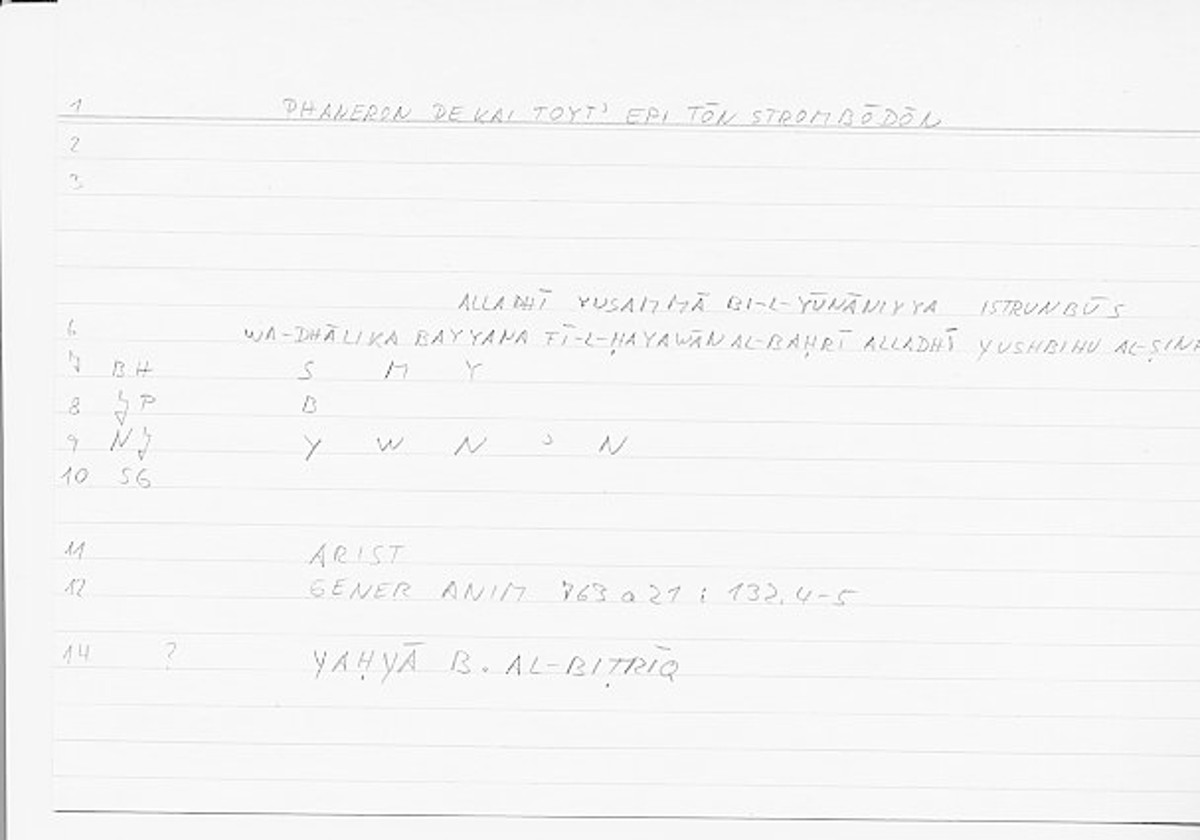 1 PHANERON DE KAI TOYT' EPI TŌN STROMBŌDŌN
2
3
ALLADHĪ YUSAMMĀ BI-L-YŪNĀNIYYA ISTRUNBŪS
6 WA-DHĀLIKA BAYYANA FĪ-L-ḤAYAWĀN AL-BAḤRĪ ALLADHĪ YUSHBIHU
7 BH S M Y
8 JP B
9 NJ Y W N ʾ N
10 SG
11 ARIST
12 GENER ANIM 763 a 21 ; 132.4-5
14 ? YAḤYĀ B. AL-BIṬRĪQ